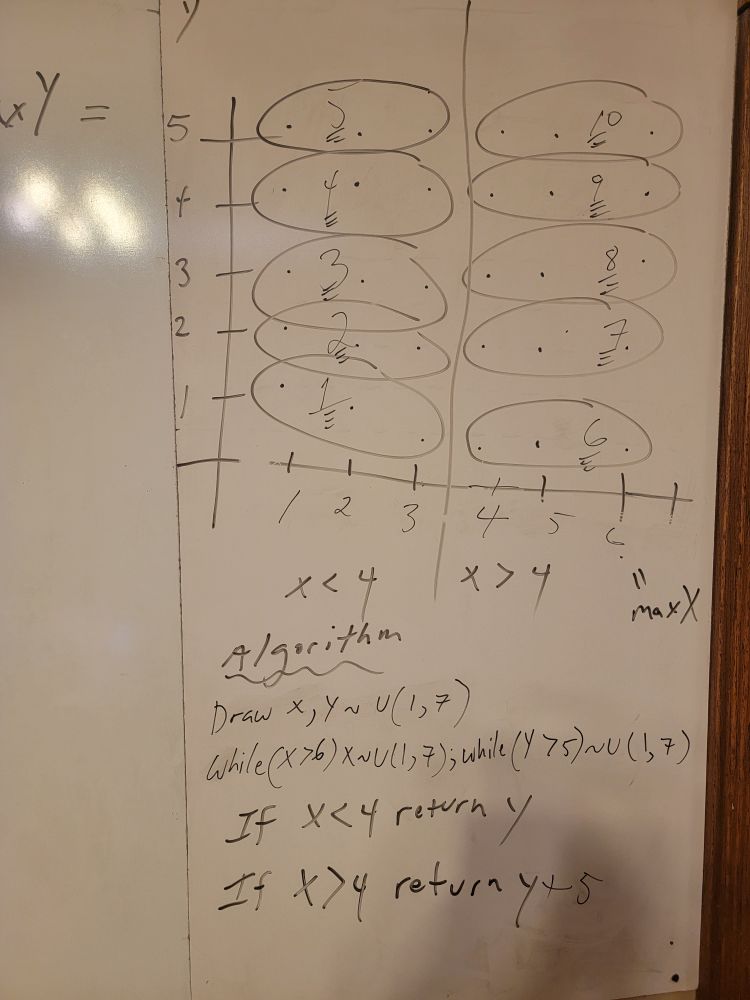 y
xY =
5 5 10
4 4 9
3 3 8
2 2 7
1 1 6
1 2 3 4 5 6
x < 4 x > 4 "
maxX
Algorithm
Draw x, y ~ U(1,7)
while(x>6) x~U(1,7); while(y>5)~U(1,7)
If x<4 return y
If x>4 return y+5